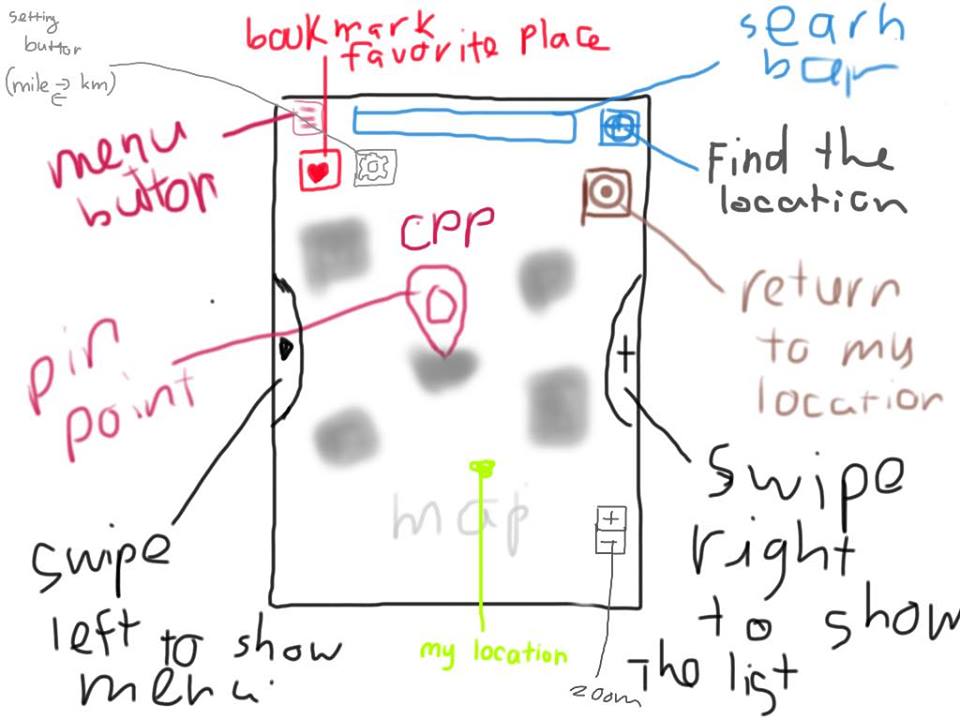 setting
button
(mile ⇄ km)
bookmark
favorite place
searh
bar
menu
button
Find the
location
CPP
return
to my
location
pin
point
+
swipe
left to show
menu.
map
+
-
my location
zoom
swipe
right
to show
The list